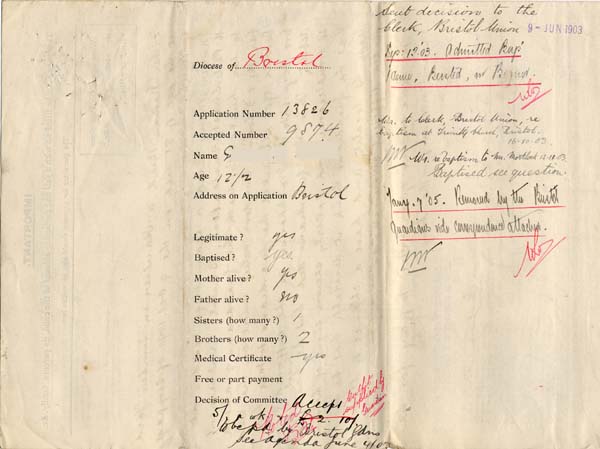 Diocese of Bristol
Application Number 13826
Accepted Number 9874
Name G
Age 12 1/2
Address on Application Bristol
Legitimate? yes
Baptised? yes
Mother alive? yes
Father alive? No
Sisters (how many?) 1
Brothers (how many?) 2
Medical Certificate yes
Free or part payment
Decision of Committee Accept
5/- wk £2. 10/
to be pd by Bristol Gdns
See agenda June 4/03
Sent decision to the
Clerk, Bristol Union
9 - JUN 1903
'03. Admitted
Wr. to Clerk, Bristol Union, re
baptism at Trinity Church, Bristol.
16-10-03
Wr. re baptism to Mr.
Baptised see question
Jany. 9 '05. Removed by the Bristol
Guardians vide correspondence attached.